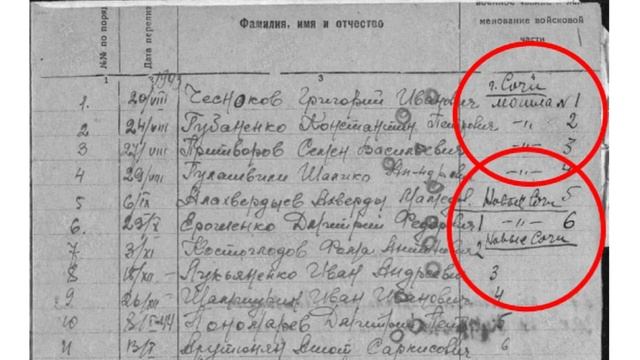 №№ по поряд
Дата перепис
Фамилия, имя и отчество
менование войсковой
части
1
3
1943
г. Сочи
1. 20/VIII Чесноков Григорий Иванович могила N 1
2 24/VIII Губаненко Константин Петрович -"- 2
3 27/VIII Притворов Семен Васильевич -"- 3
4 29/VIII Гулашвили Шалико -"- 4
5 6/IX Алахвердыев Ахверды Новые Сочи 5
6. 25/X Ерошенко Дмитрий Федорович 1 -"- 6
7 3/XI Костоглодов Фома Антонович 2 Новые Сочи
8 18/XII Лукьяненко Иван Андреевич 3
9 26/XII Иван Иванович 4
10 8/I-44 Пономарев Дмитрий Петр 5
11 13/I Арутюнян Ашот Саркисович 6